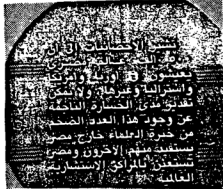 تشير الإحصائيات إلى أن
يعيشون في أوربا وأمريكا
واستراليا وغيرها، ولا يمكن
تقدير مدى الخسارة الناجمة
عن وجود هذا العدد الضخم
من خيرة العلماء خارج مصر
يستفيد منهم الآخرون ومصر
تستعين بالمراكز الاستشارية
العالمية